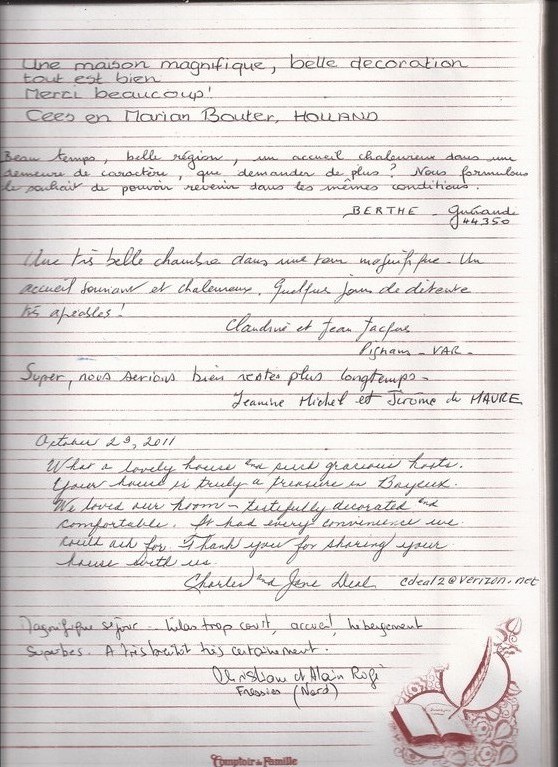 Une maison magnifique, belle decoration
tout est bien
Merci beaucoup!
Cees en Marian Bouter, HOLLAND
Beau temps, belle région, un accueil chaleureux dans une
demeure de caractère, que demander de plus? Nous formulons
le souhait de pouvoir revenir dans les mêmes conditions.
BERTHE - Guérande
44350
Une très belle chambre dans une magnifique. Un
accueil souriant et chaleureux. Quelques jours de détente
très agréables!
Claudine et Jean Jacques
Pignans - VAR -
Super, nous serions bien restés plus longtemps -
Jeanine Michel et Jérome de MAURE
October 29, 2011
What a lovely house and such gracious hosts.
Your house is truly a treasure in Bayeux.
We loved our room - tastefully decorated and
comfortable. It had every convenience we
could ask for. Thank you for sharing your
house with us.
Charles and Jane Deal cdeal2@verizon.net
Magnifique séjour - hélas trop court, accueil, hébergement
superbes. A très bientôt très certainement.
Christiane et Alain
Fressies (Nord)
Comptoir de Famille